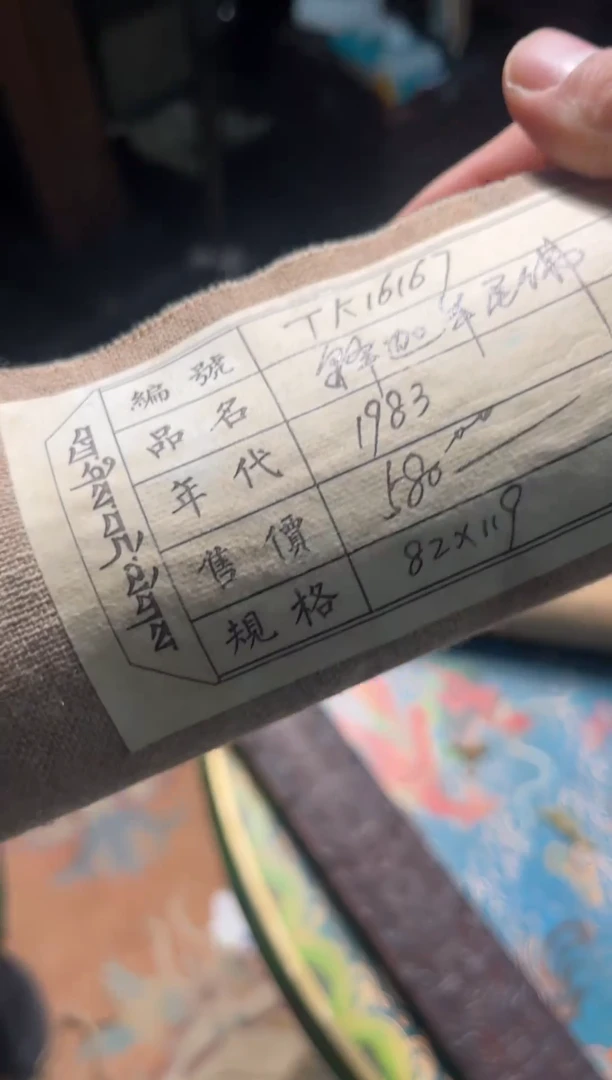 編號 TK16167
品名 釋迦牟尼佛
年代 1983
售價 580.00
規格 82×119